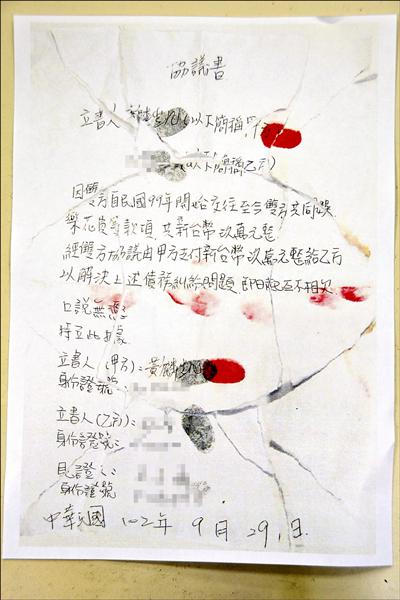 協議書
立書人 (以下簡稱甲方)
(以下簡稱乙方)
因雙方自民國99年開始交往至今雙方共同娛
樂花費等款項 共新台幣 萬元整
經雙方協議由甲方支付新台幣 萬元整給乙方
以解決上述債務糾紛問題 即日起互不相欠
口說無憑
特立此據
立書人(甲方):黃
身份證號:
立書人(乙方):
身份證號:
見證人:
身份證號
中華民國 102年 9月 29.日.